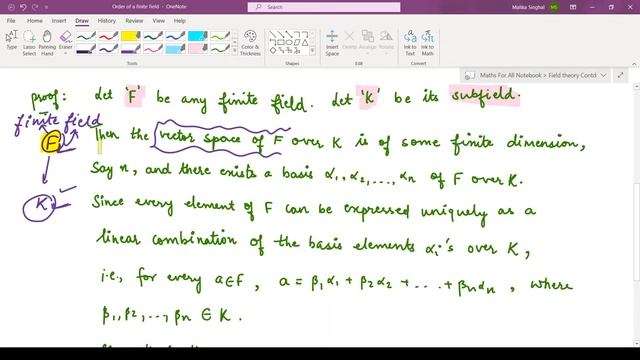 Order of finite field - OneNote
Malika Singhal MS
File Home Insert Draw History Review View Help
Type Lasso Select Insert Space
Eraser
Color & Thickness
Shapes
Insert Space Delete Format Background
Ink to Text Ink to Shape
Ink to Math
Maths For All Notebook > Field theory Contd
proof: Let 'F' be any finite field. Let 'K' be its subfield.
finite field
F
Then the vector space of F over K is of some finite dimension,
Say n, and there exists a basis α₁, α₂, ..., αₙ of F over K.
K
Since every element of F can be expressed uniquely as a
linear combination of the basis elements αᵢ's over K,
i.e., for every a∈F, a = β₁α₁ + β₂α₂ + ... + βₙαₙ, where
β₁, β₂, ..., βₙ ∈ K.